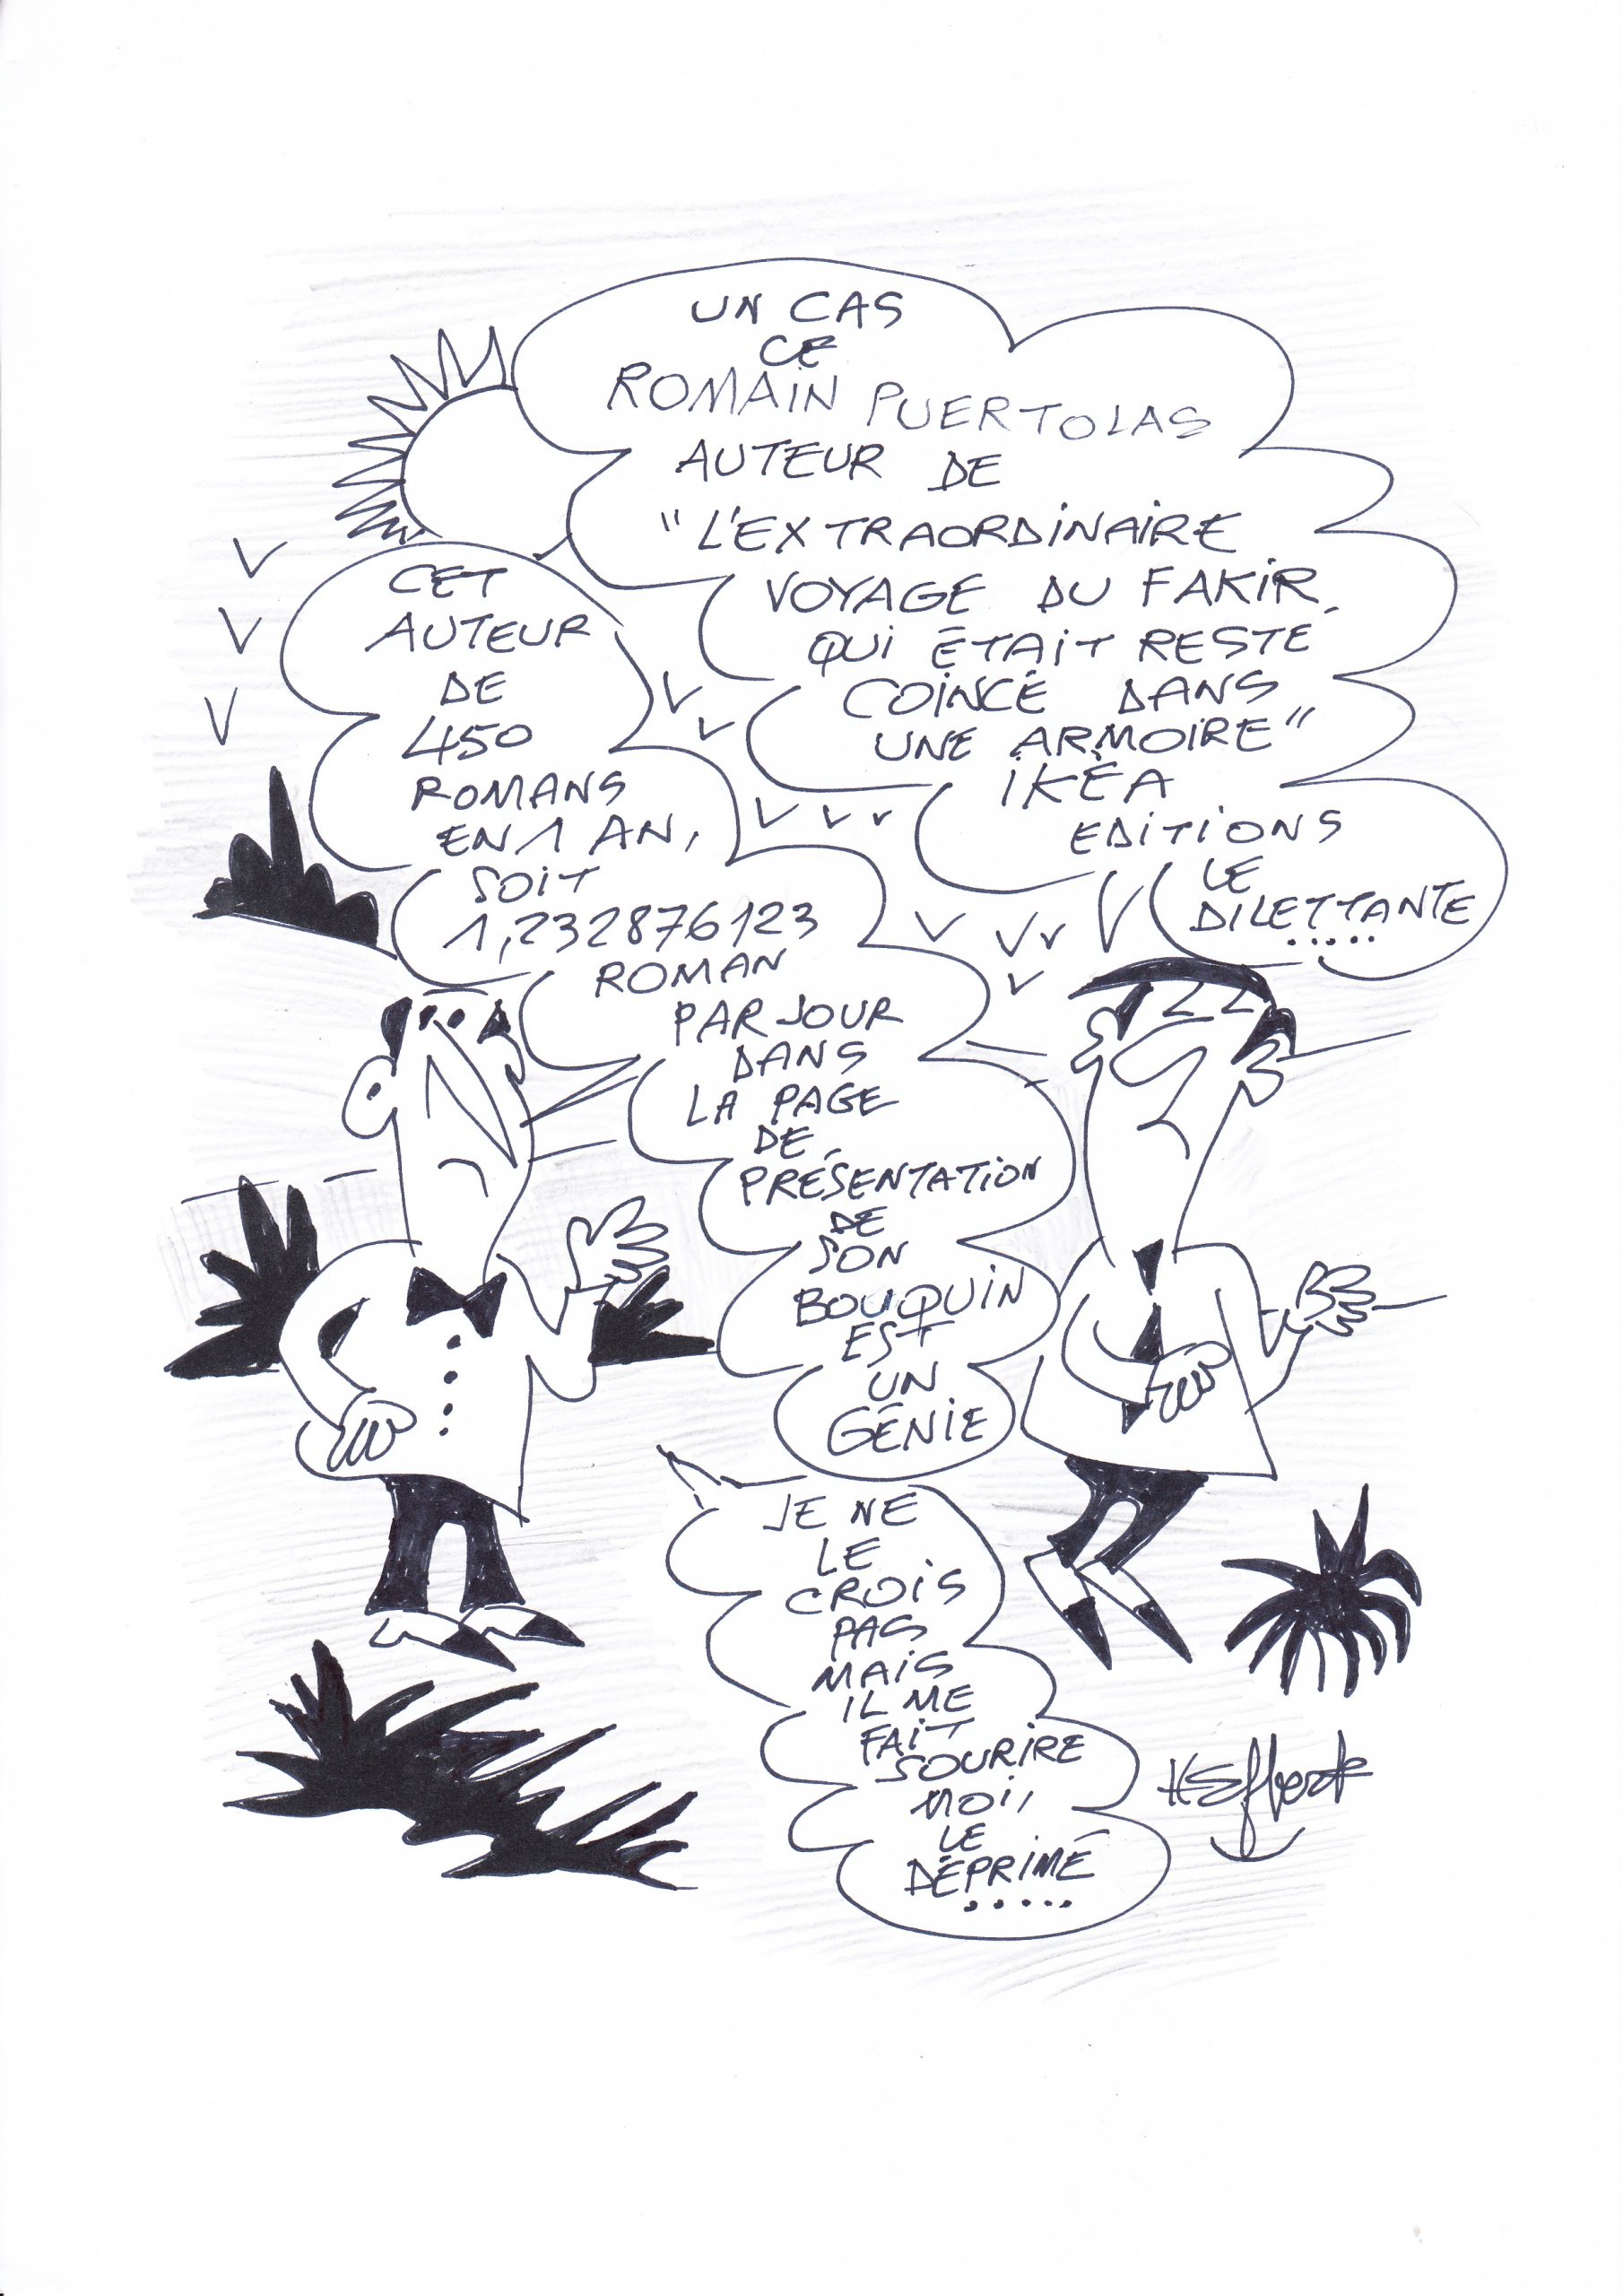 UN CAS
CE
ROMAIN PUERTOLAS
AUTEUR DE
"L'EXTRAORDINAIRE
VOYAGE DU FAKIR
QUI ÉTAIT RESTÉ
COINCÉ DANS
UNE ARMOIRE"
IKÉA
EDITIONS
LE
DILETTANTE
.....
CET
AUTEUR
DE
450
ROMANS
EN 1 AN,
SOIT
1,232876123
ROMAN
PAR JOUR
DANS
LA PAGE
DE
PRÉSENTATION
DE
SON
BOUQUIN
EST
UN
GÉNIE
JE NE
LE
CROIS
PAS
MAIS
IL ME
FAIT
SOURIRE
MOI,
LE
DÉPRIMÉ
.....